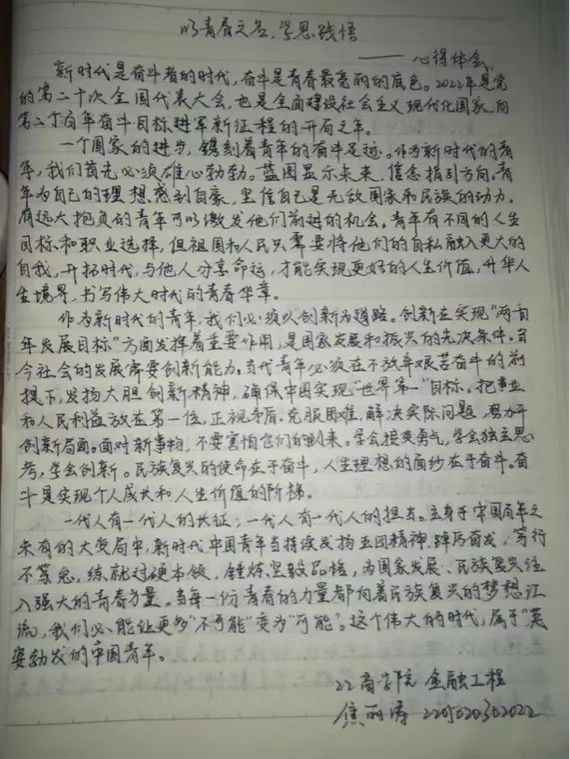 以青春之名，学思践悟
——心得体会
新时代是奋斗者的时代，奋斗是青春最亮丽的底色。2022年是党
的第二十次全国代表大会，也是全面建设社会主义现代化国家，向
第二个百年奋斗目标进军新征程的开局之年。
一个国家的进步，镌刻着青年的奋斗足迹。作为新时代的青
年，我们首先必须雄心勃勃。蓝图显示未来，信念指引方向。青
年为自己的理想感到自豪，坚信自己是无敌国家和民族的动力。
有远大抱负的青年可以激发他们前进的机会。青年有不同的人生
目标和职业选择，但祖国和人民只需要将他们的自私融入更大的
自我，开拓时代，与他人分享命运，才能实现更好的人生价值，升华人
生境界，书写伟大时代的青春华章。
作为新时代的青年，我们必须以创新为道路。创新在实现“两百
年发展目标”方面发挥着重要作用，是国家发展和振兴的先决条件。当
今社会的发展需要创新能力。当代青年必须在不放弃艰苦奋斗的前
提下，发扬大胆创新精神，确保中国实现“世界第一”目标。把事业
和人民利益放在第一位，正视矛盾，克服困难，解决实际问题，努力开
创新局面。面对新事物，不要害怕它们的到来。学会接受勇气，学会独立思
考，学会创新。民族复兴的使命在于奋斗，人生理想的面纱在于奋斗。奋
斗是实现个人成长和人生价值的阶梯。
一代人有一代人的长征；一代人有一代人的担当。立身于中国百年之
未有的大变局中，新时代中国青年当持续发扬五四精神，踔厉奋发，笃行
不怠，练就过硬本领，锤炼坚毅品格，为国家发展、民族复兴注
入强大的青春力量。当每一份青春的力量都向着民族复兴的梦想汇
流，我们必能让更多“不可能”变为“可能”。这个伟大的时代，属于“英
姿勃发的中国青年。
22商学院 金融工程
焦 涛 2205020302022